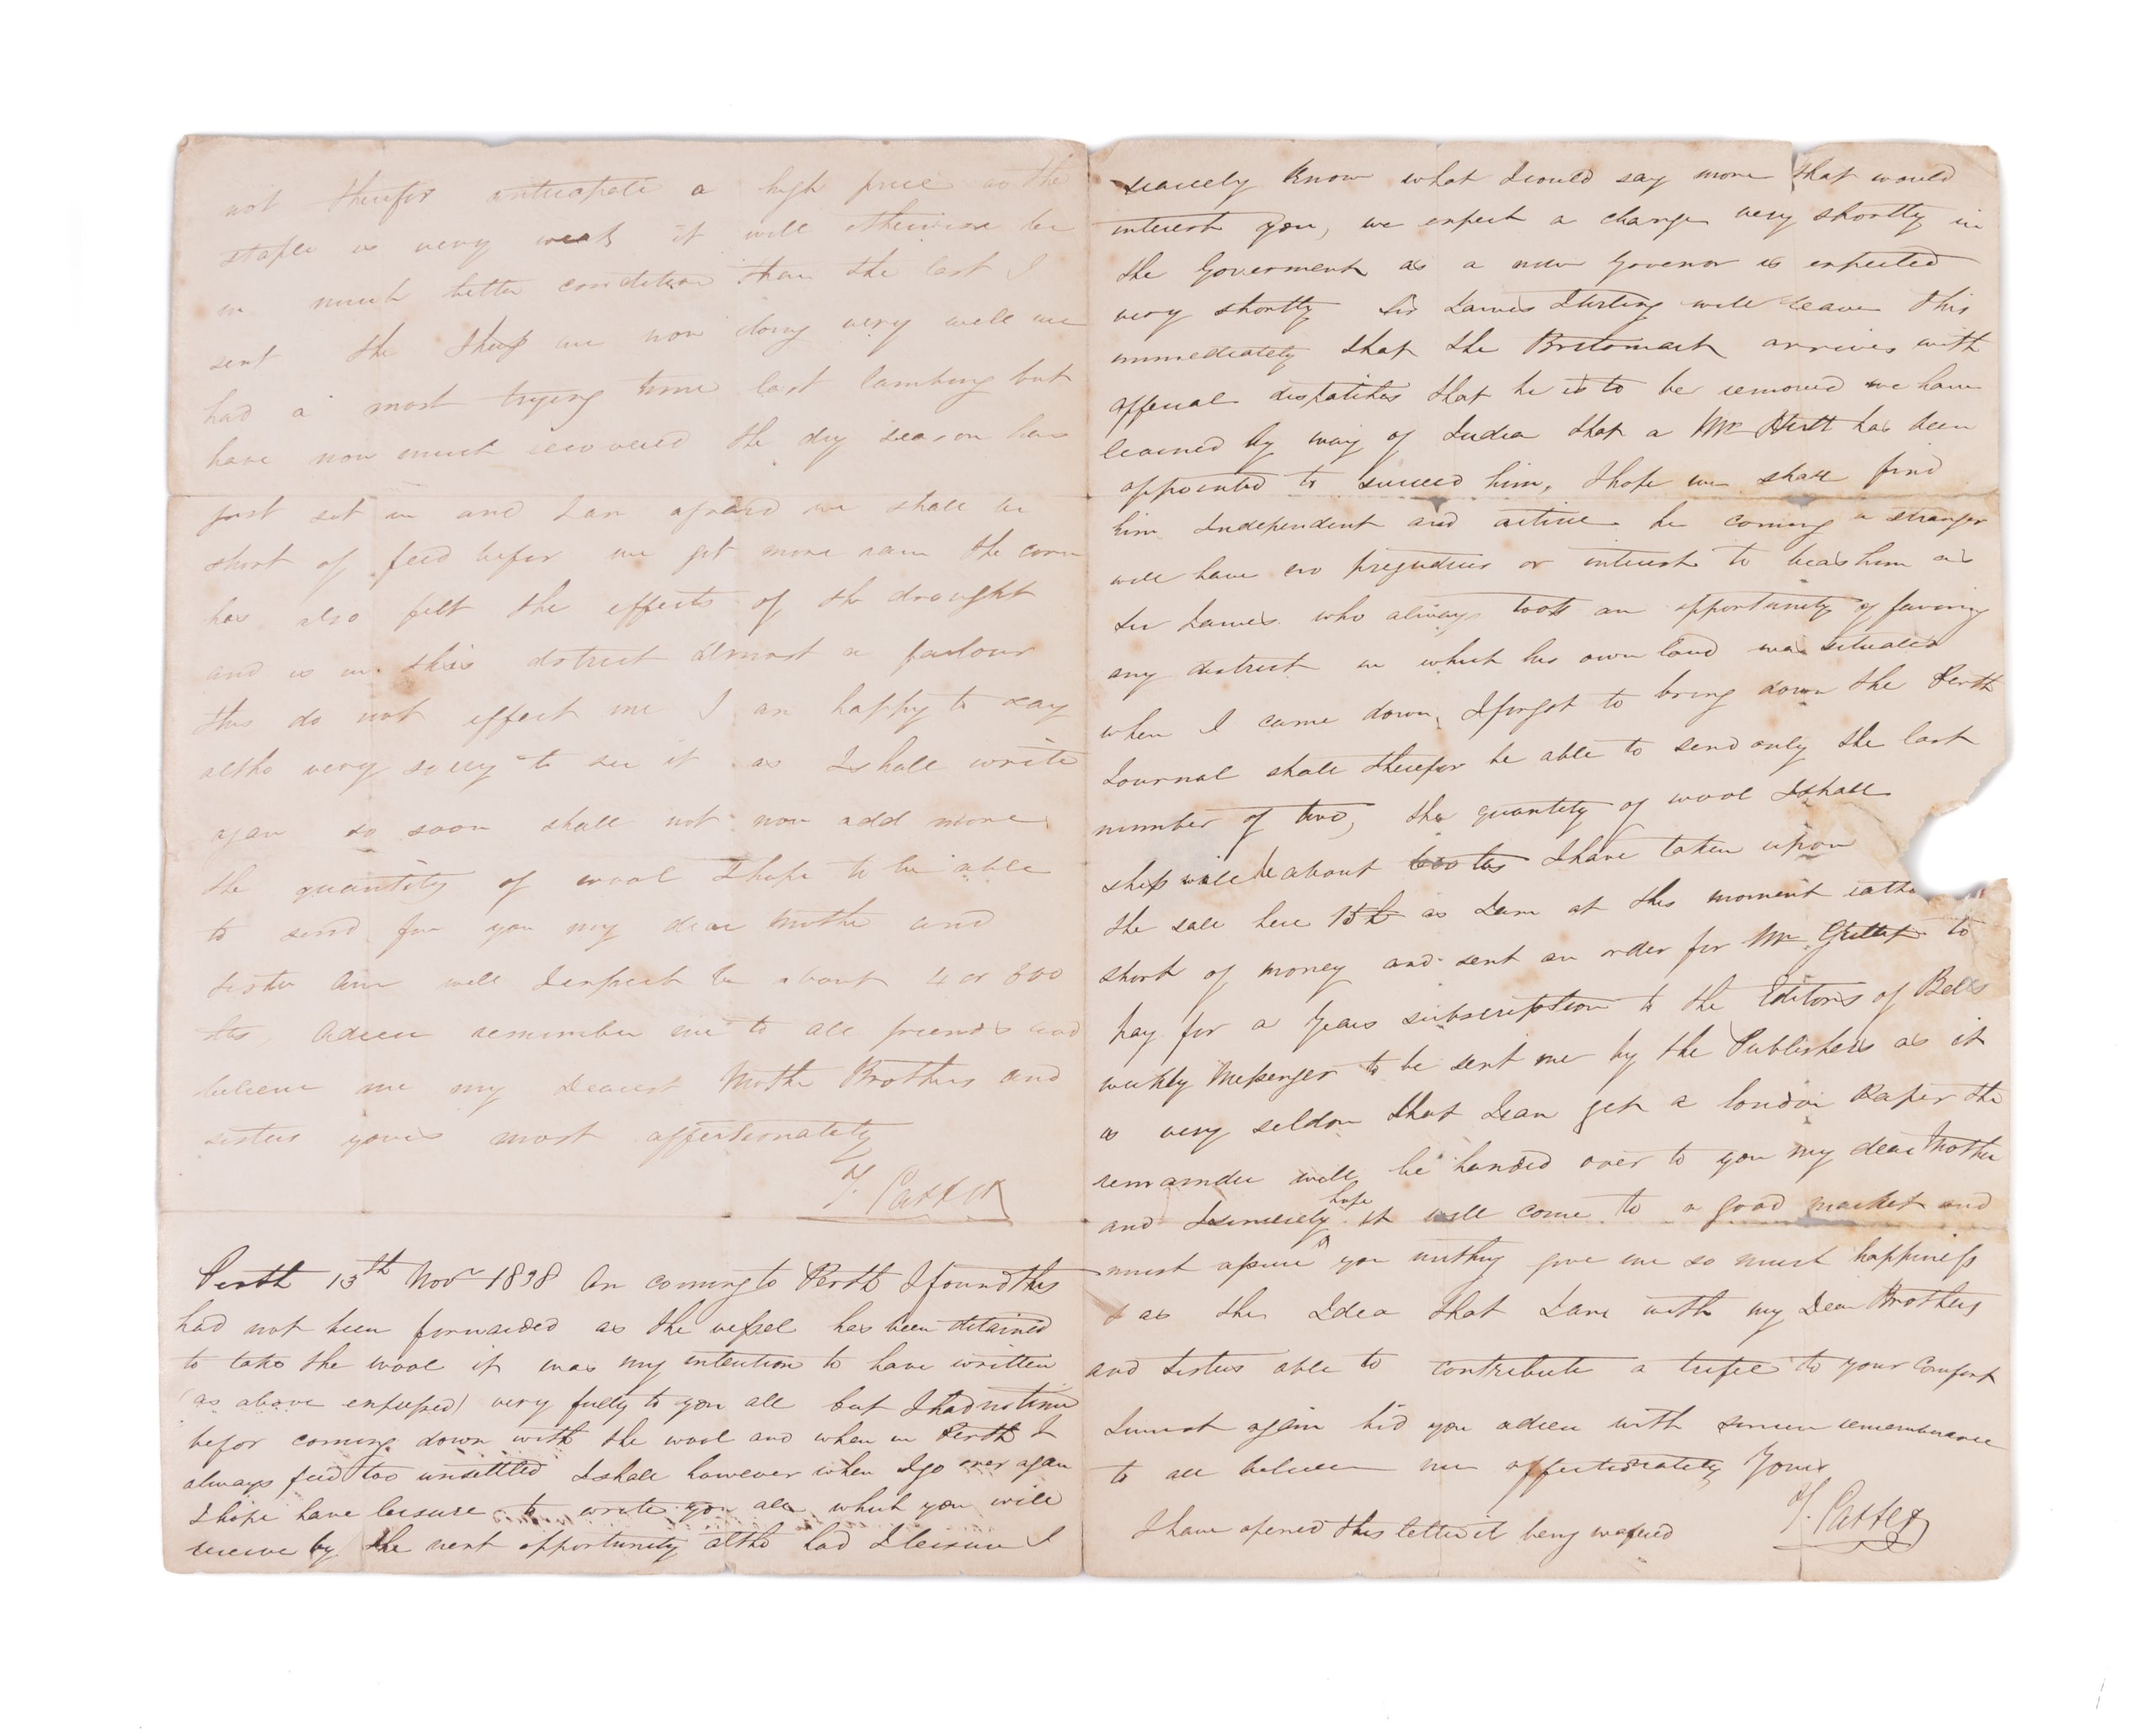 not therefor anticapate a high price as the
staple is very weak it will otherwise be
in much better condition than the last I
sent the Sheep are now doing very well we
had a most trying time last lambing but
have now much recovered the dry season has
just set in and I am afraid we shall be
short of feed befor we get more rain the corn
has also felt the effects of the drought
and is in this district almost a failour
this do not effect me I am happy to say
altho very sorry to see it as I shall write
again so soon shall not now add more
the quantity of wool I hope to be able
to send for you my dear Mother and
sister Ann will I expect be about 4 or 500
lbs, Adieu remember me to all friends and
believe me my dearest Mother Brothers and
sisters yours most affectionately
T. Carter
Perth 13th Novr 1838 On coming to Perth I found this
had not been forwarded as the vessel has been detained
to take the wool it was my intention to have written
(as above expressed) very fully to you all but I had no time
befor coming down with the wool and when in Perth I
always feel too unsettled I shall however when I go over again
I hope have leisure to write you all which you will
receive by the next opportunity altho had I leisure I
scarcely know what I could say more that would
interest you, we expect a change very shortly in
the Goverment as a new Govenor is expected
very shortly Sir James Stirling will leave this
immediately that the Britomart arrives with
offecial dispatches that he is to be removed we have
learned by way of India that a Mr Hutt has been
appointed to succeed him, I hope we shall find
him Independent and active he coming a stranger
will have no prejudices or interest to beas him as
Sir James who always took an opportunity of favoring
any district in which his own land was situated
when I came down, I forgot to bring down the Perth
Journal shall therefor be able to send only the last
number of two, the quantity of wool I shall
ship will be about 600 lbs I have taken upon
the sale here 15£ as I am at this moment rathe
short of money and sent an order for Mr to
pay for a Years subscription to the Editors of Bells
weekly Messenger to be sent me by the Publishers as it
is very seldom that I can get a london Paper the
remainder will be handed over to you my dear Mother
and I sincerely hope it will come to a good market and
must assure you nothing give me so much happiness
as the Idea that I am with my Dear Brothers
and Sisters able to contribute a trifle to your comfort
I must again bid you adieu with sincere rememberance
to all believe me affectionately Yours
T. Carter
I have opened this letter it being wafered